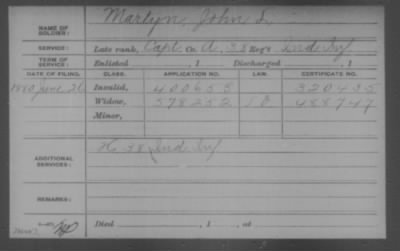 NAME OF SOLDIER: Martyn, John L.
SERVICE: Late rank, Capt. Co. A, 38 Reg't Ind. Inf
TERM OF SERVICE: Enlisted , 1 Discharged , 1
DATE OF FILING. CLASS. APPLICATION NO. LAW. CERTIFICATE NO.
1880 June 21 Invalid, 400655 320435
Widow, 578252 488747
Minor,
ADDITIONAL SERVICES: K 38 Ind Inf
REMARKS:
Died , 1 , at